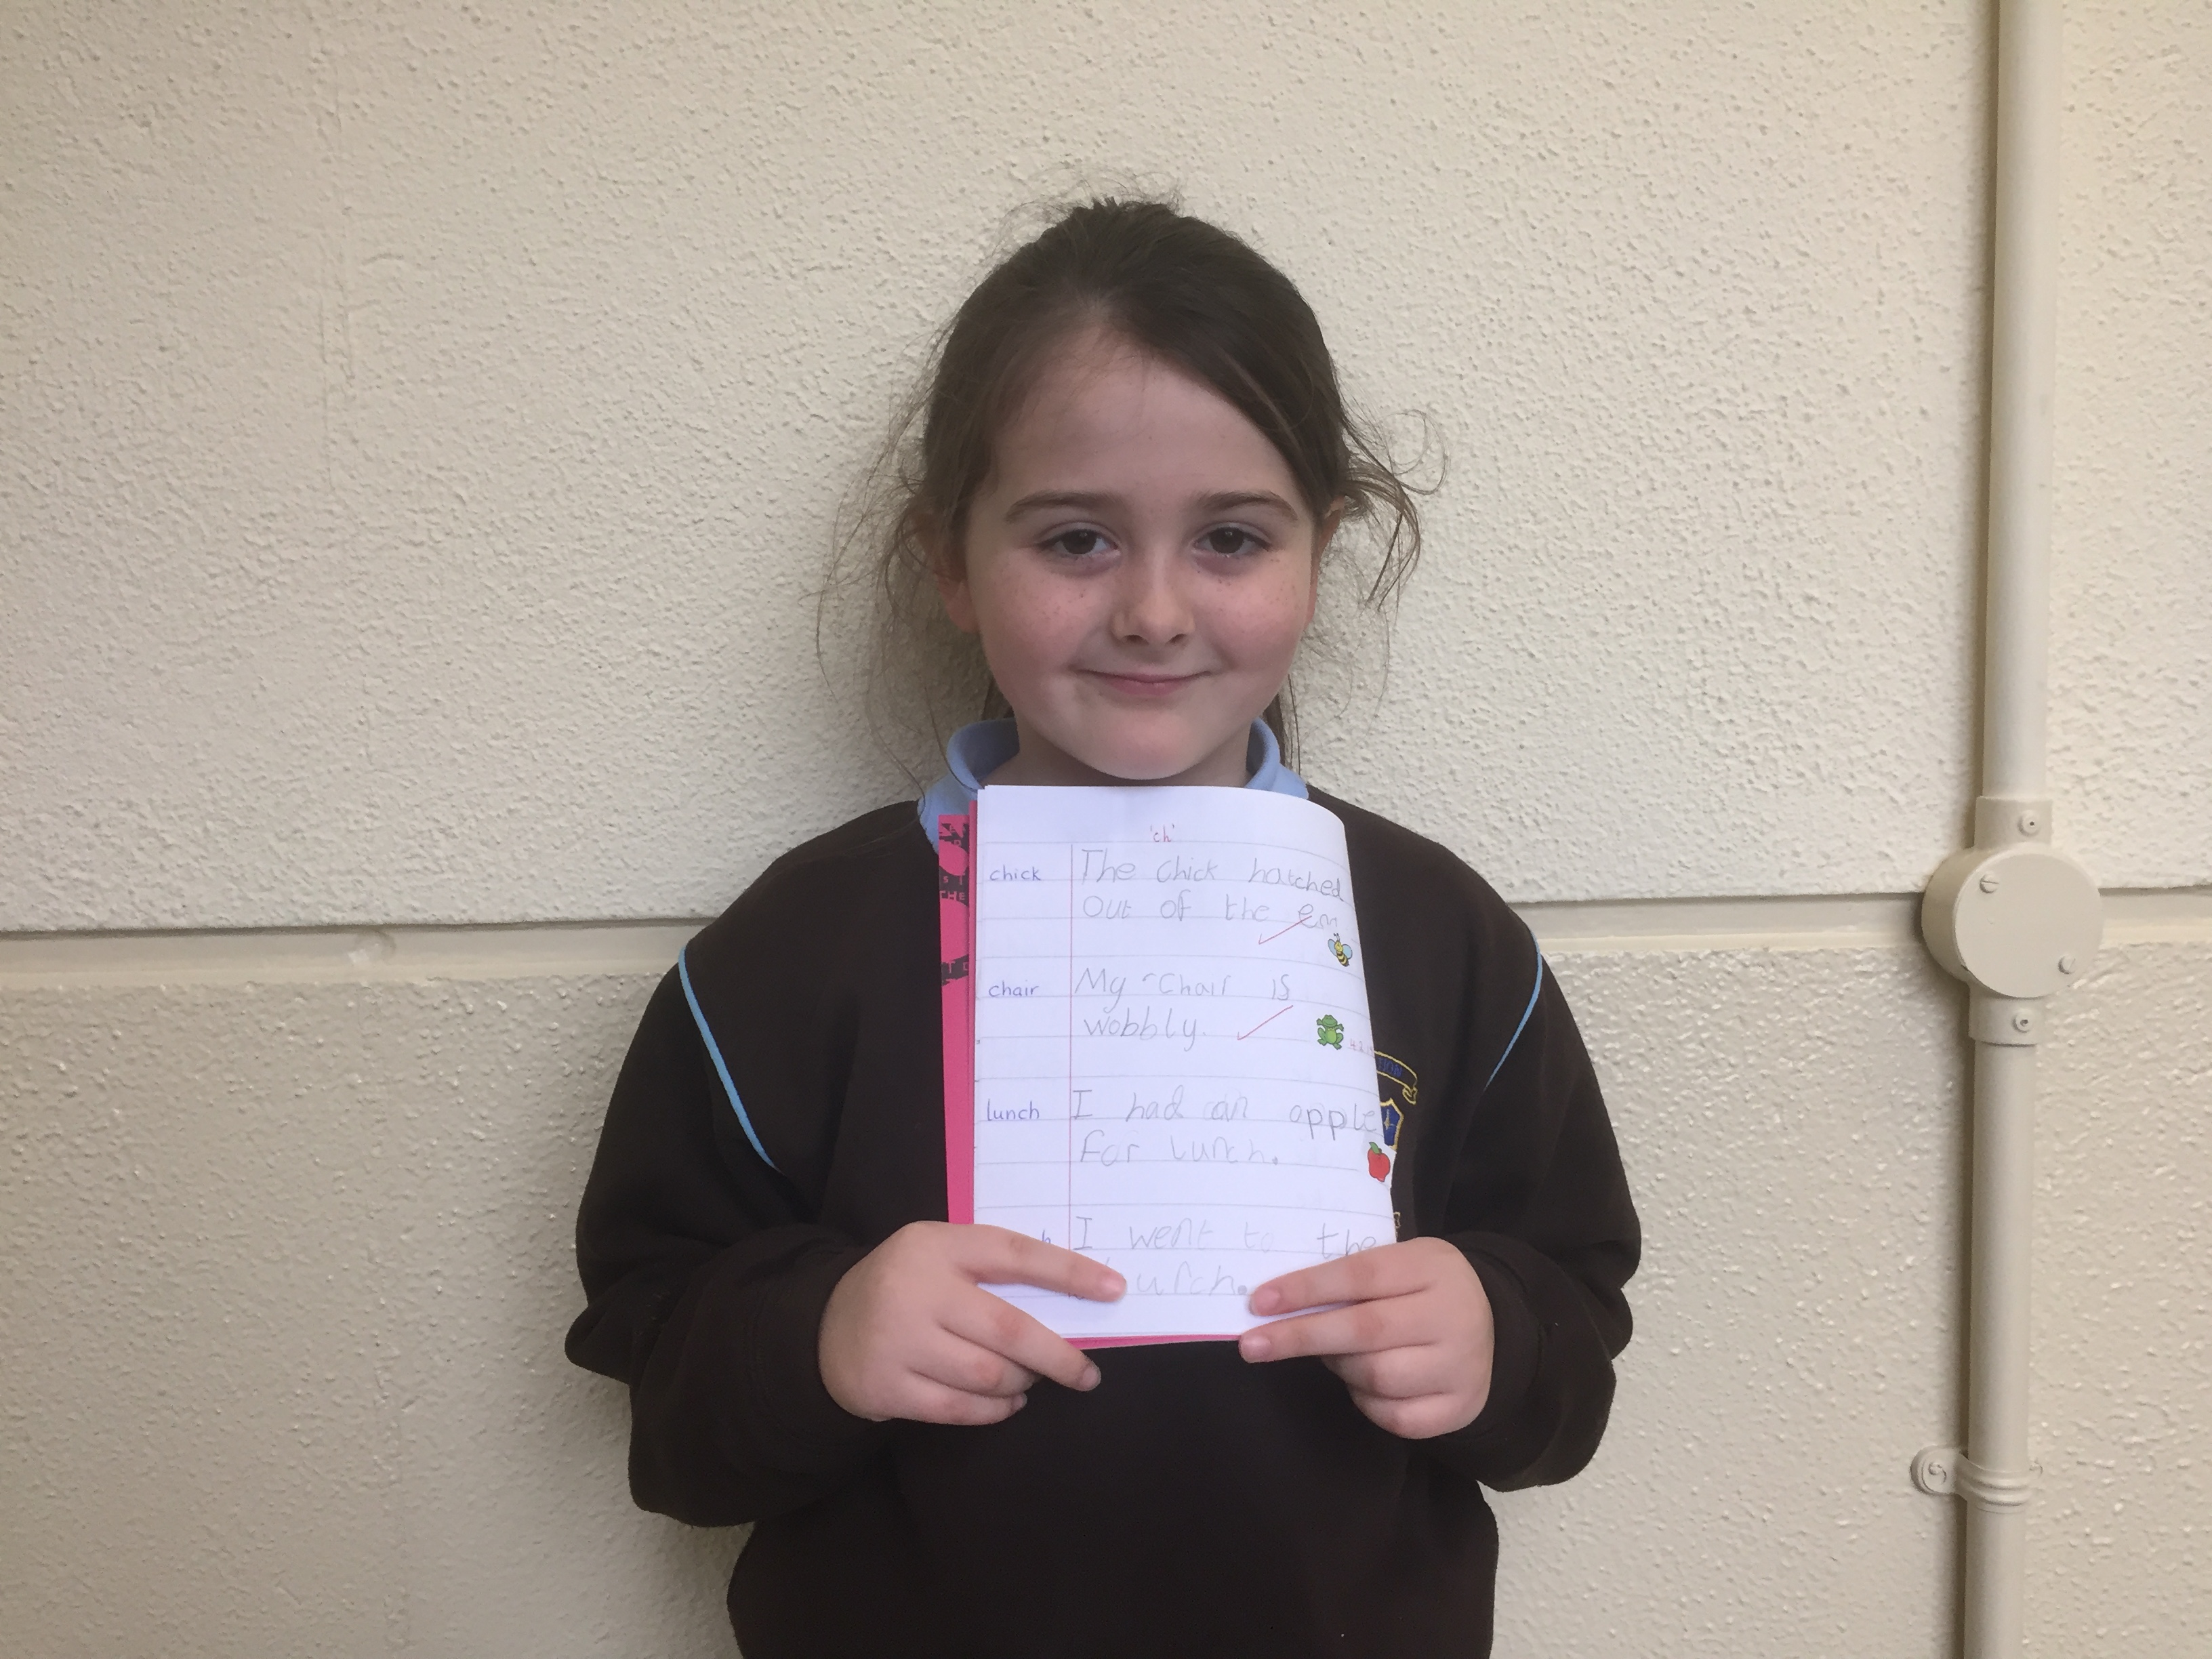 'ch'
chick The chick hatched
out of the
chair My chair is
wobbly.
lunch I had an apple
for lunch.
I went to the